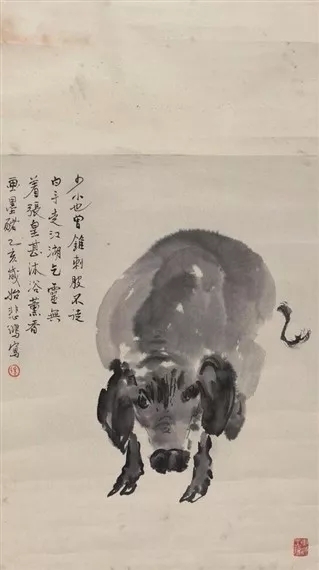 少小也曾錐刺股不徒
白手走江湖乞靈無
着張皇甚沐浴薰香
画墨豬乙亥歲始悲鴻寫